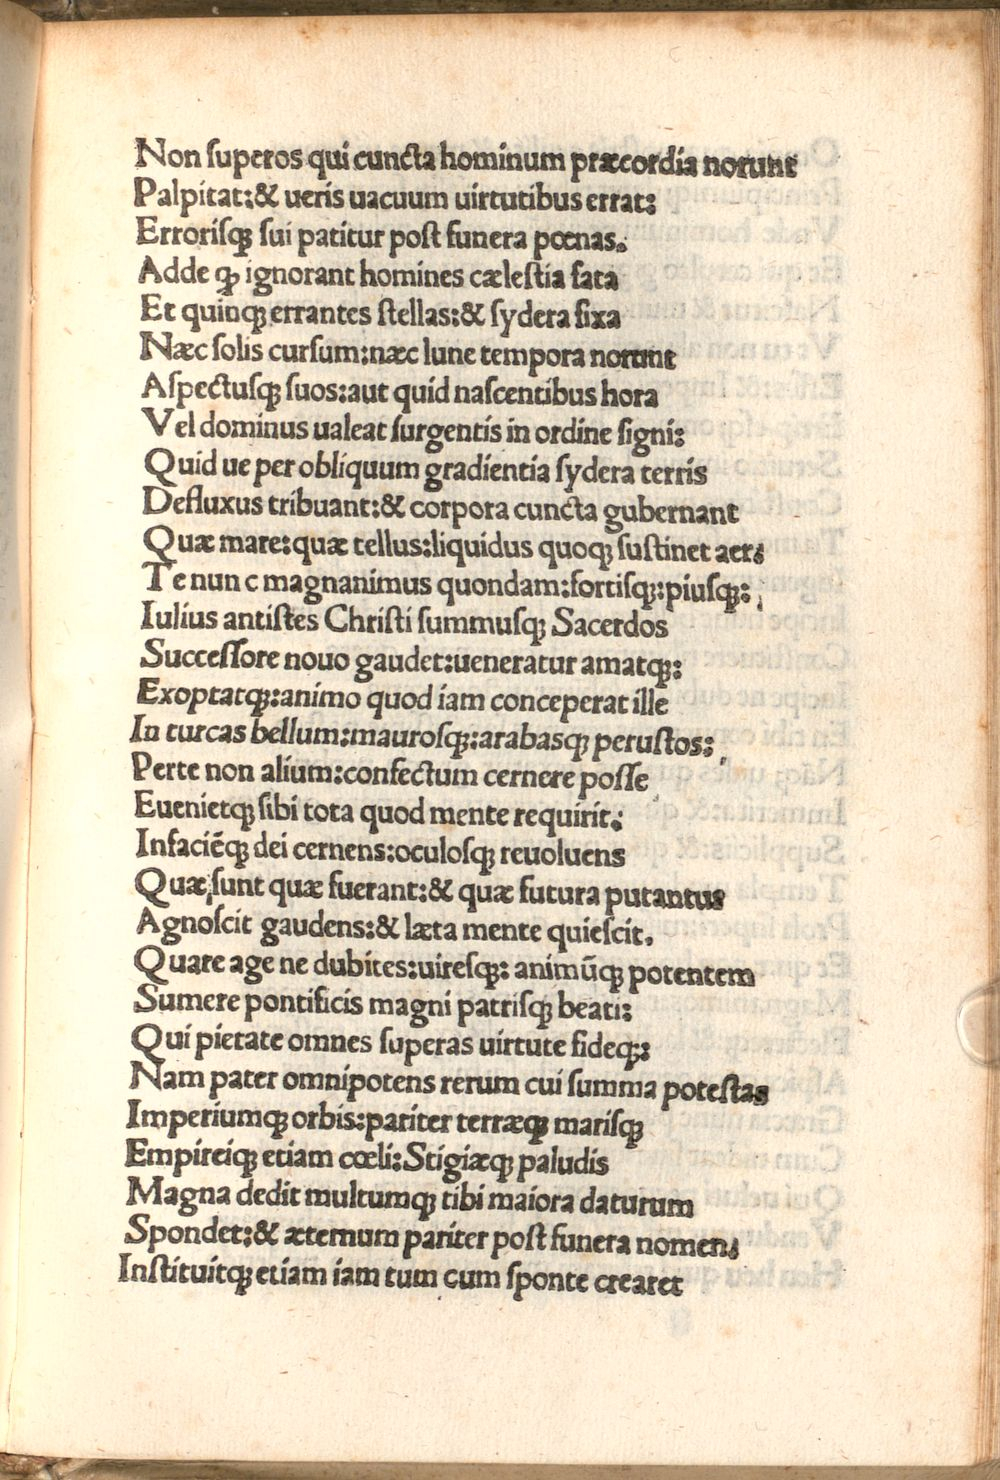 Non ſuperos qui cuncta hominum præcordia norunt
Palpitat:& ueris uacuum uirtutibus errat:
Erroriſqꝫ ſui patitur poſt funera pœnas.
Adde ꝙ ignorant homines cæleſtia fata
Et quinqꝫ errantes ſtellas:& ſydera fixa
Næc ſolis curſum:næc lune tempora norunt
Aſpectuſqꝫ ſuos:aut quid naſcentibus hora
Vel dominus ualeat ſurgentis in ordine ſigni:
Quid ue per obliquum gradientia ſydera terris
Defluxus tribuant:& corpora cuncta gubernant
Quæ mare:quæ tellus:liquidus quoqꝫ ſuſtinet aer:
Te nun c magnanimus quondam:fortiſqꝫ:piuſqꝫ:
Iulius antiſtes Chriſti ſummuſqꝫ Sacerdos
Succeſſore nouo gaudet:ueneratur amatqꝫ:
Exoptatqꝫ:animo quod iam conceperat ille
In turcas bellum:mauroſqꝫ:arabaſqꝫ peruſtos:
Perte non alium:confectum cernere poſſe
Euenietqꝫ ſibi tota quod mente requirit:
Infaciēqꝫ dei cernens:oculoſqꝫ reuoluens
Quæ ſunt quæ fuerant:& quæ futura putantus
Agnoſcit gaudens:& læta mente quieſcit.
Quare age ne dubites:uireſqꝫ: animūqꝫ potentem
Sumere pontificis magni patriſqꝫ beati:
Qui pietate omnes ſuperas uirtute fideqꝫ:
Nam pater omnipotens rerum cui ſumma poteſtas
Imperiumqꝫ orbis:pariter terræqꝫ mariſqꝫ
Empireiqꝫ etiam cœli:Stigiæqꝫ paludis
Magna dedit multumqꝫ tibi maiora daturum
Spondet:& æternum pariter poſt funera nomen:
Inſtituitqꝫ etiam iam tum cum ſponte crearet